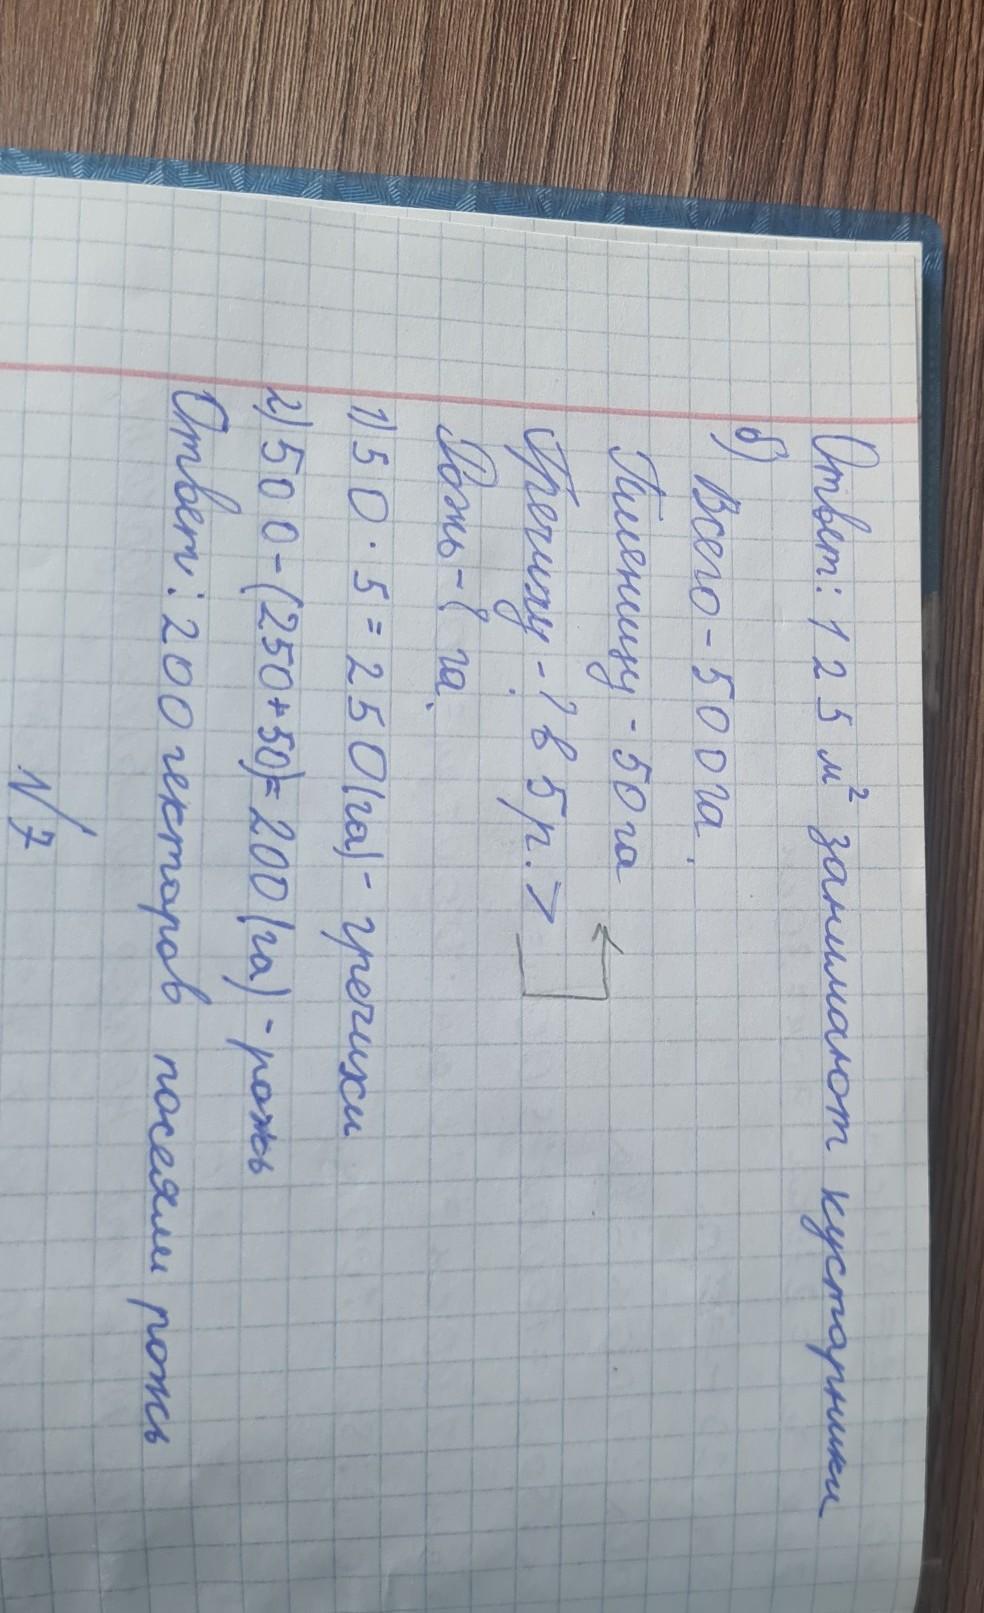 Ответ: 125 м² занимают кустарники
б) Всего - 500 га.
Пшеницу - 50 га
Гречиху - ? в 5 р. >
Рожь - ? га.
1) 50 · 5 = 250 (га) - гречихи
2) 500 - (250 + 50) = 200 (га) - рожь
Ответ: 200 гектаров посеяли рожь
№ 7